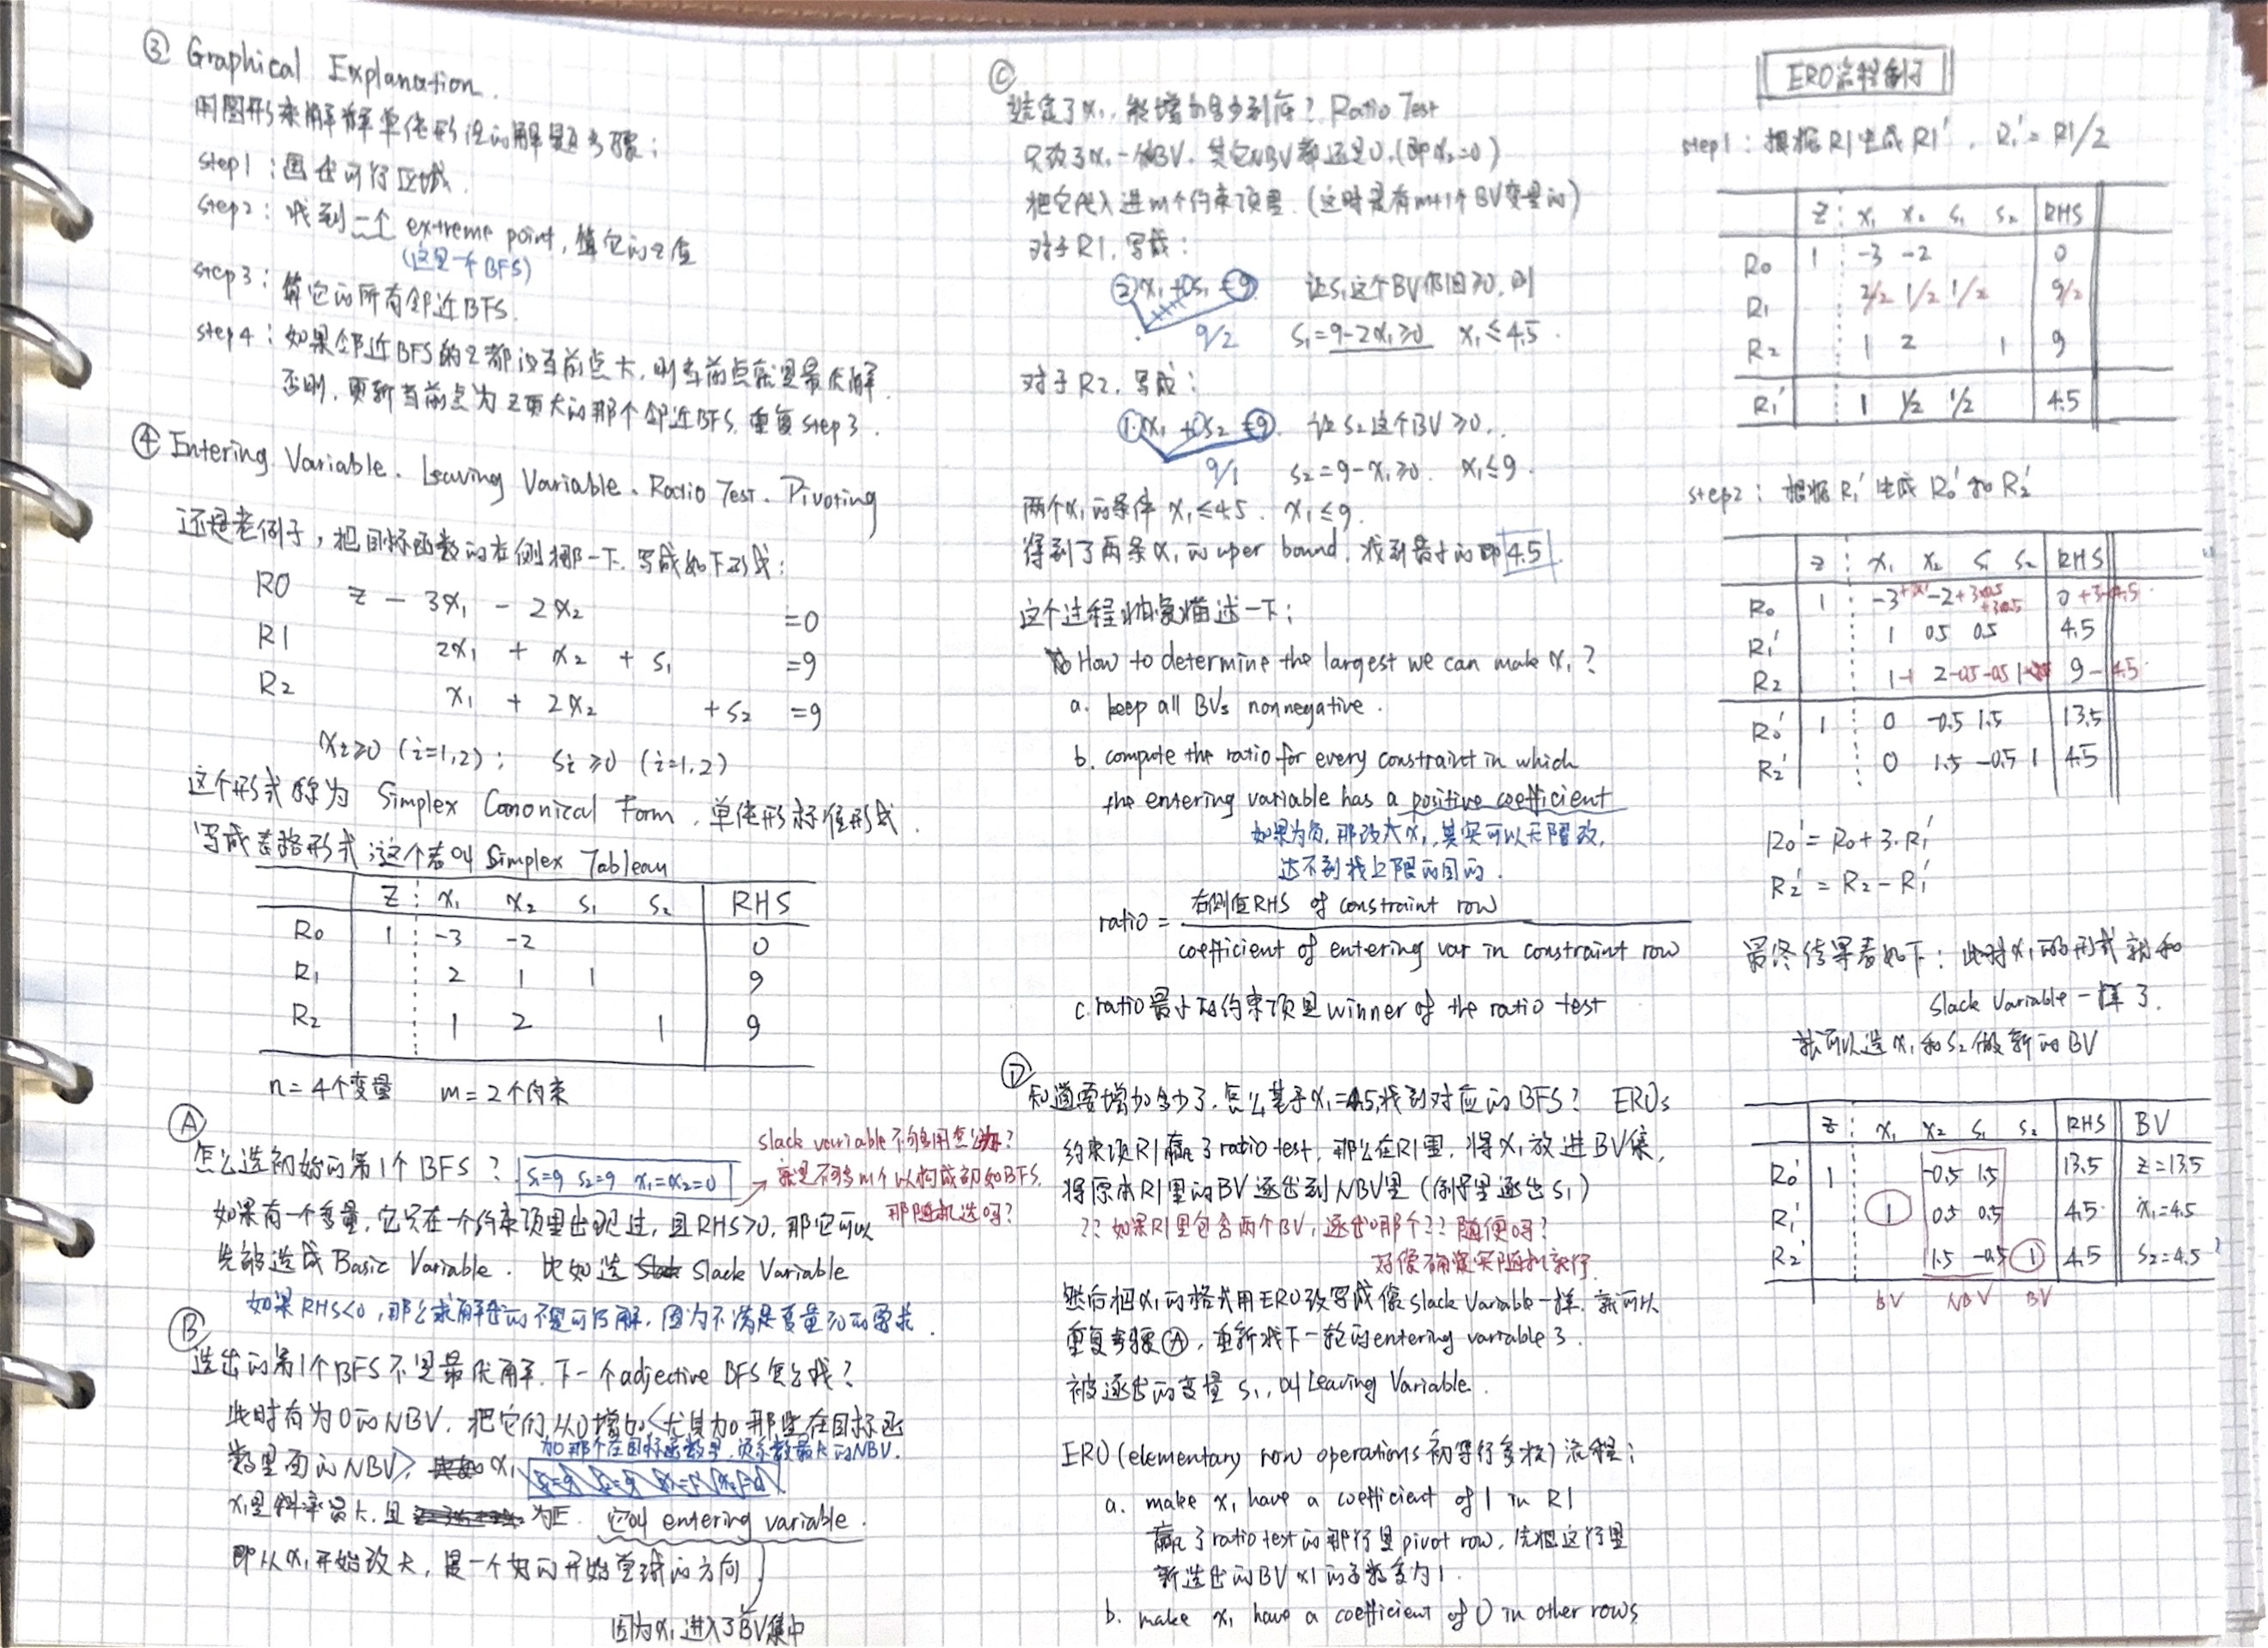 ③ Graphical Explanation.
用图形来解释单纯形法的解题步骤:
step1: 画出可行区域.
step2: 找到一个 extreme point, 算它的z值
(这是一个BFS)
step3: 算它的所有邻近BFS.
step4: 如果邻近BFS的z都没当前点大, 则当前点就是最优解.
否则, 更新当前点为z更大的那个邻近BFS, 重复step3.
④ Entering Variable、Leaving Variable、Ratio Test、Pivoting
还是老例子, 把目标函数的右侧挪一下, 写成如下形式:
R0 z - 3x₁ - 2x₂ =0
R1 2x₁ + x₂ + s₁ =9
R2 x₁ + 2x₂ + s₂ =9
xi≥0 (i=1,2); si≥0 (i=1,2)
这个形式称为 Simplex Canonical Form, 单纯形标准形式.
写成表格形式:这个表叫 Simplex Tableau
z x₁ x₂ s₁ s₂ RHS
R0 1 -3 -2 0
R1 2 1 1 9
R2 1 2 1 9
n=4个变量 m=2个约束
Ⓐ
怎么选初始的第1个BFS? s₁=9 s₂=9 x₁=x₂=0
slack variable不够用怎么办?
就是不够m个以构成初始BFS,
那随机选吗?
如果有一个变量, 它只在一个约束项里出现过, 且RHS>0, 那它可以
先被选成Basic Variable. 比如选 Slack Variable
如果RHS<0, 那么求解出的不是可行解, 因为不满足变量≥0的要求.
Ⓑ
选出的第1个BFS不是最优解, 下一个adjective BFS怎么找?
此时有为0的NBV, 把它们从0增加<尤其加那些在目标函
数里面的NBV>, x₁
加那个在目标函数里, 负系数最大的NBV.
x₁是斜率最大, 且 为正. 它叫 entering variable.
即从x₁开始改大, 是一个好的开始尝试的方向
因为x₁进入了BV集中
Ⓒ
选定了x₁, 能增加多少到底? Ratio Test
只改了x₁一个BV, 其它NBV都还是0, (即x₂=0)
把它代入进m个约束项里. (这时是有m+1个BV变量的)
对于R1, 写成:
2x₁+0s₁=9 让s₁这个BV依旧≥0, 则
9/2 s₁=9-2x₁≥0 x₁≤4.5.
对于R2, 写成:
1·x₁+0s₂=9 让s₂这个BV≥0,
9/1 s₂=9-x₁≥0. x₁≤9.
两个x₁的条件 x₁≤4.5. x₁≤9.
得到了两条x₁的uper bound, 找到最小的即4.5
这个过程抽象描述一下:
How to determine the largest we can make x₁?
a. keep all BVs nonnegative.
b. compute the ratio for every constraint in which
the entering variable has a positive coefficient
如果为负, 那改大x₁, 其实可以无限改,
达不到找上限的目的.
ratio = 右侧值RHS of constraint row
coefficient of entering var in constraint row
c. ratio最小的约束项是winner of the ratio test
Ⓓ
知道要增加多少了, 怎么基于x₁=4.5,找到对应的BFS? EROs
约束项R1赢了ratio test, 那么在R1里, 将x₁放进BV集,
将原本R1里的BV逐出到NBV里 (例子里逐出s₁)
?? 如果R1里包含两个BV, 逐出哪个?? 随便吗?
好像确实随机就行.
然后把x₁的格式用ERO改写成像Slack Variable一样, 就可以
重复步骤Ⓐ, 重新找下一轮的entering variable了.
被逐出的变量 s₁, 叫Leaving Variable.
ERO(elementary row operations 初等行变换)流程:
a. make x₁ have a coefficient of 1 in R1
赢了ratio test的那行是pivot row, 先把这行里
新选出的BV x1的系数变为1.
b. make x₁ have a coefficient of 0 in other rows
ERO流程例子
step1: 根据R1生成R1′, R₁′=R1/2
z x₁ x₂ s₁ s₂ RHS
R0 1 -3 -2 0
R1 2/2 1/2 1/2 9/2
R2 1 2 1 9
R1′ 1 1/2 1/2 4.5
step2: 根据R₁′生成R0′和R2′
z x₁ x₂ s₁ s₂ RHS
R0 1 -3+3×1 -2+3×0.5 +3×0.5 0+3×4.5
R1′ 1 0.5 0.5 4.5
R2 1-1 2-0.5 -0.5 1 9-4.5
R0′ 1 0 -0.5 1.5 13.5
R2′ 0 1.5 -0.5 1 4.5
R0′=R0+3·R1′
R2′=R2-R1′
最终结果表如下: 此时x₁的形式就和
Slack Variable一样了.
就可以选x₁和s₂做新的BV
z x₁ x₂ s₁ s₂ RHS BV
R0′ 1 -0.5 1.5 13.5 z=13.5
R1′ 1 0.5 0.5 4.5 x₁=4.5
R2′ 1.5 -0.5 1 4.5 s₂=4.5
BV NBV BV